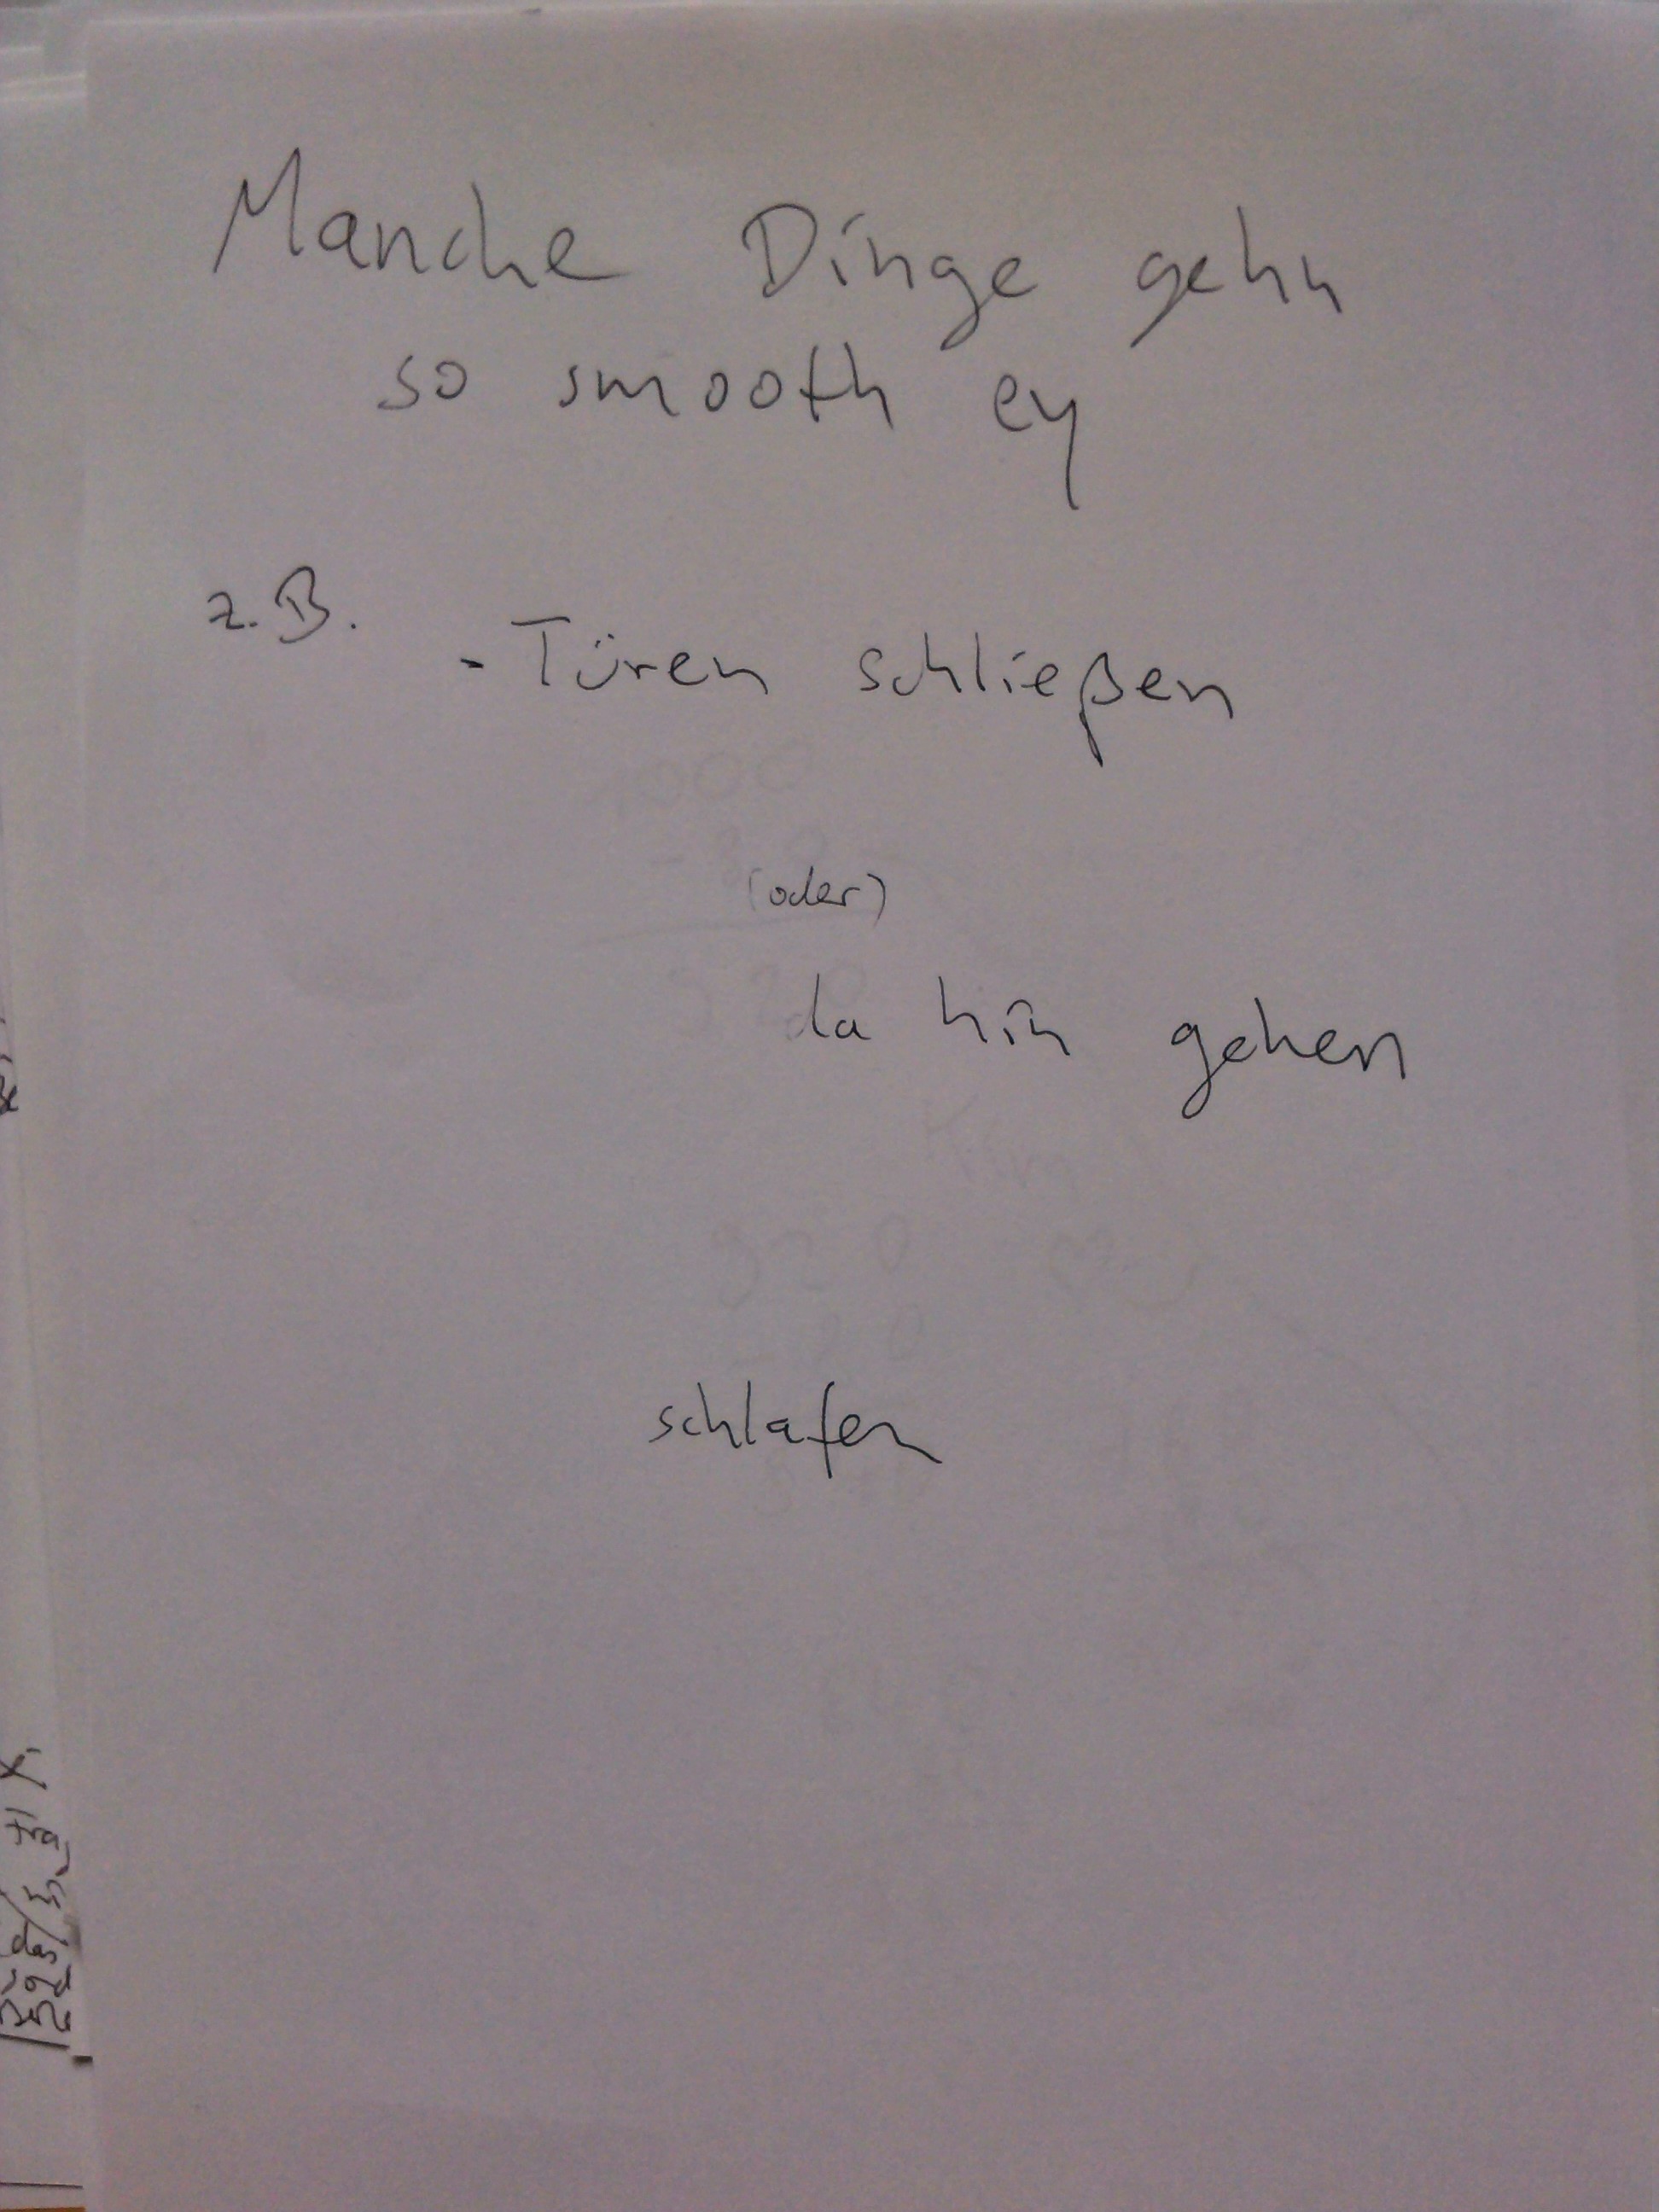 Manche Dinge gehn
so smooth ey
z.B.
- Türen schließen
(oder)
da hin gehen
schlafen